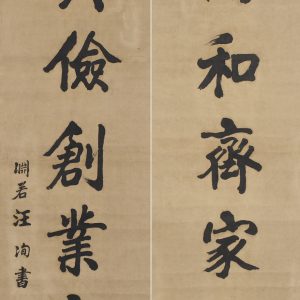 和齊家
儉創業
淵若汪洵書